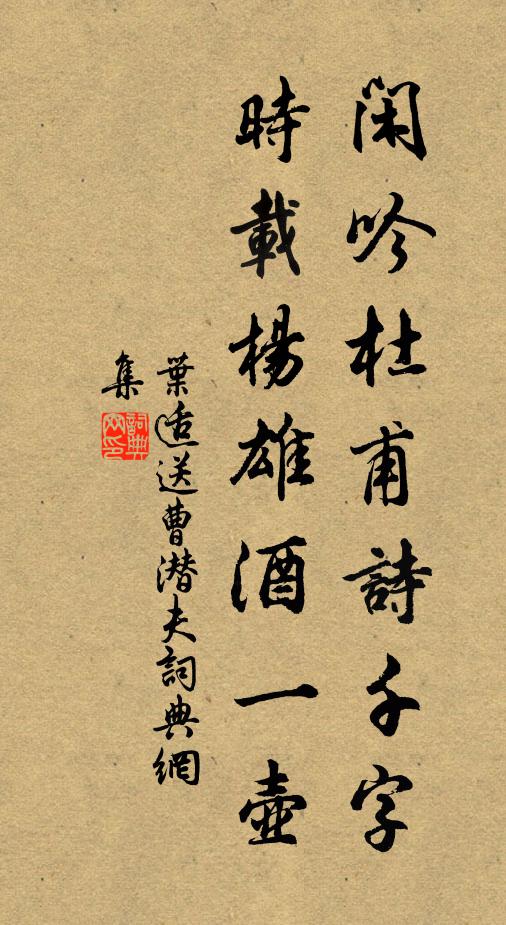 閑吟杜甫詩千字
時載楊雄酒一壺
葉适送曹潜夫詞典網
集
詞典網印